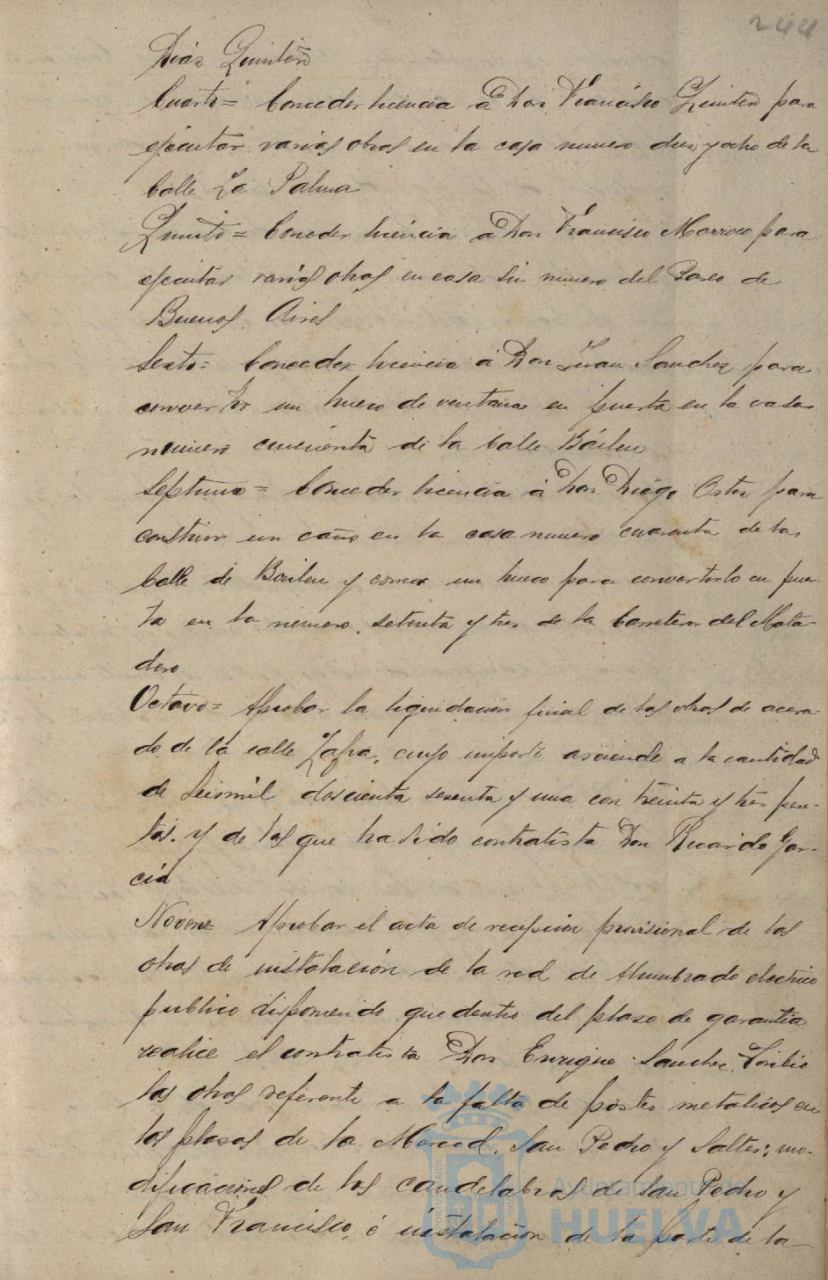 244
Diaz Quintero
Cuarto = Conceder licencia á Don Francisco Quintero para
ejecutar varias obras en la casa numero diez y ocho de la
Calle La Palma
Quinto = Conceder licencia á Don Francisco Marroco para
ejecutar varias obras en casa sin numero del Paseo de
Buenos Aires
Sexto = Conceder licencia á Don Juan Sanchez para
convertir un hueco de ventana en puerta en la casa
numero cincuenta de la Calle Bailen
Septimo = Conceder licencia á Don Diego para
construir un caño en la casa numero cuarenta de la
Calle de Bailen y correr un hueco para convertirlo en puer-
ta en la numero setenta y tres de la Carretera del Mata-
dero
Octavo = Aprobar la liquidacion final de las obras de acera-
do de la calle Zafra, cuyo importe asciende a la cantidad
de Seismil doscienta sesenta y una con treinta y tres pese-
tas. y de las que ha sido contratista Don Ricardo Gar-
cia
Noveno = Aprobar el acta de recepcion provisional de las
obras de instalacion de la red de Alumbrado electrico
publico disponiendo que dentro del plazo de garantia
realice el contratista Don Enrique Sanchez Toribio
las obras referente a la falta de postes metalicos en
las plazas de la Merced, San Pedro y Saltes; mo-
dificaciones de los candelabros de San Pedro y
San Francisco, é instalacion de la parte de la
Ayuntamiento de
HUELVA